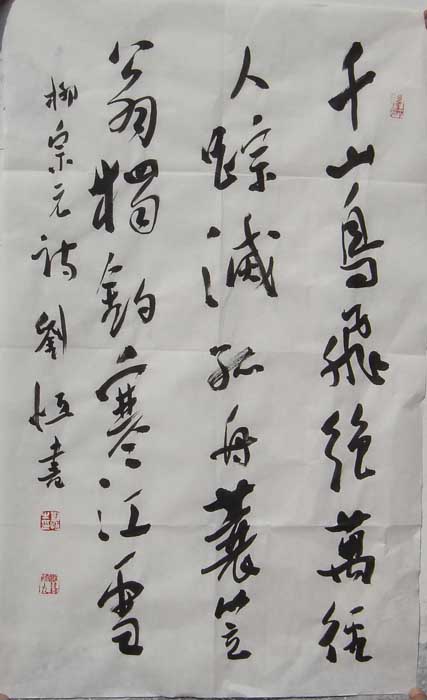 千山鳥飛絕萬徑
人踪滅孤舟蓑笠
翁獨釣寒江雪
柳宗元詩劉恒書